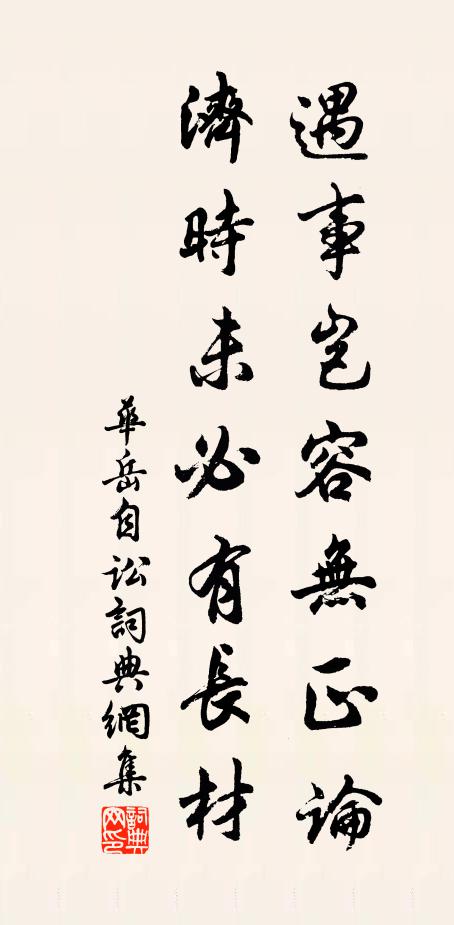 遇事豈容無正論
濟時未必有長材
華岳自訟詞典網集
詞典網印